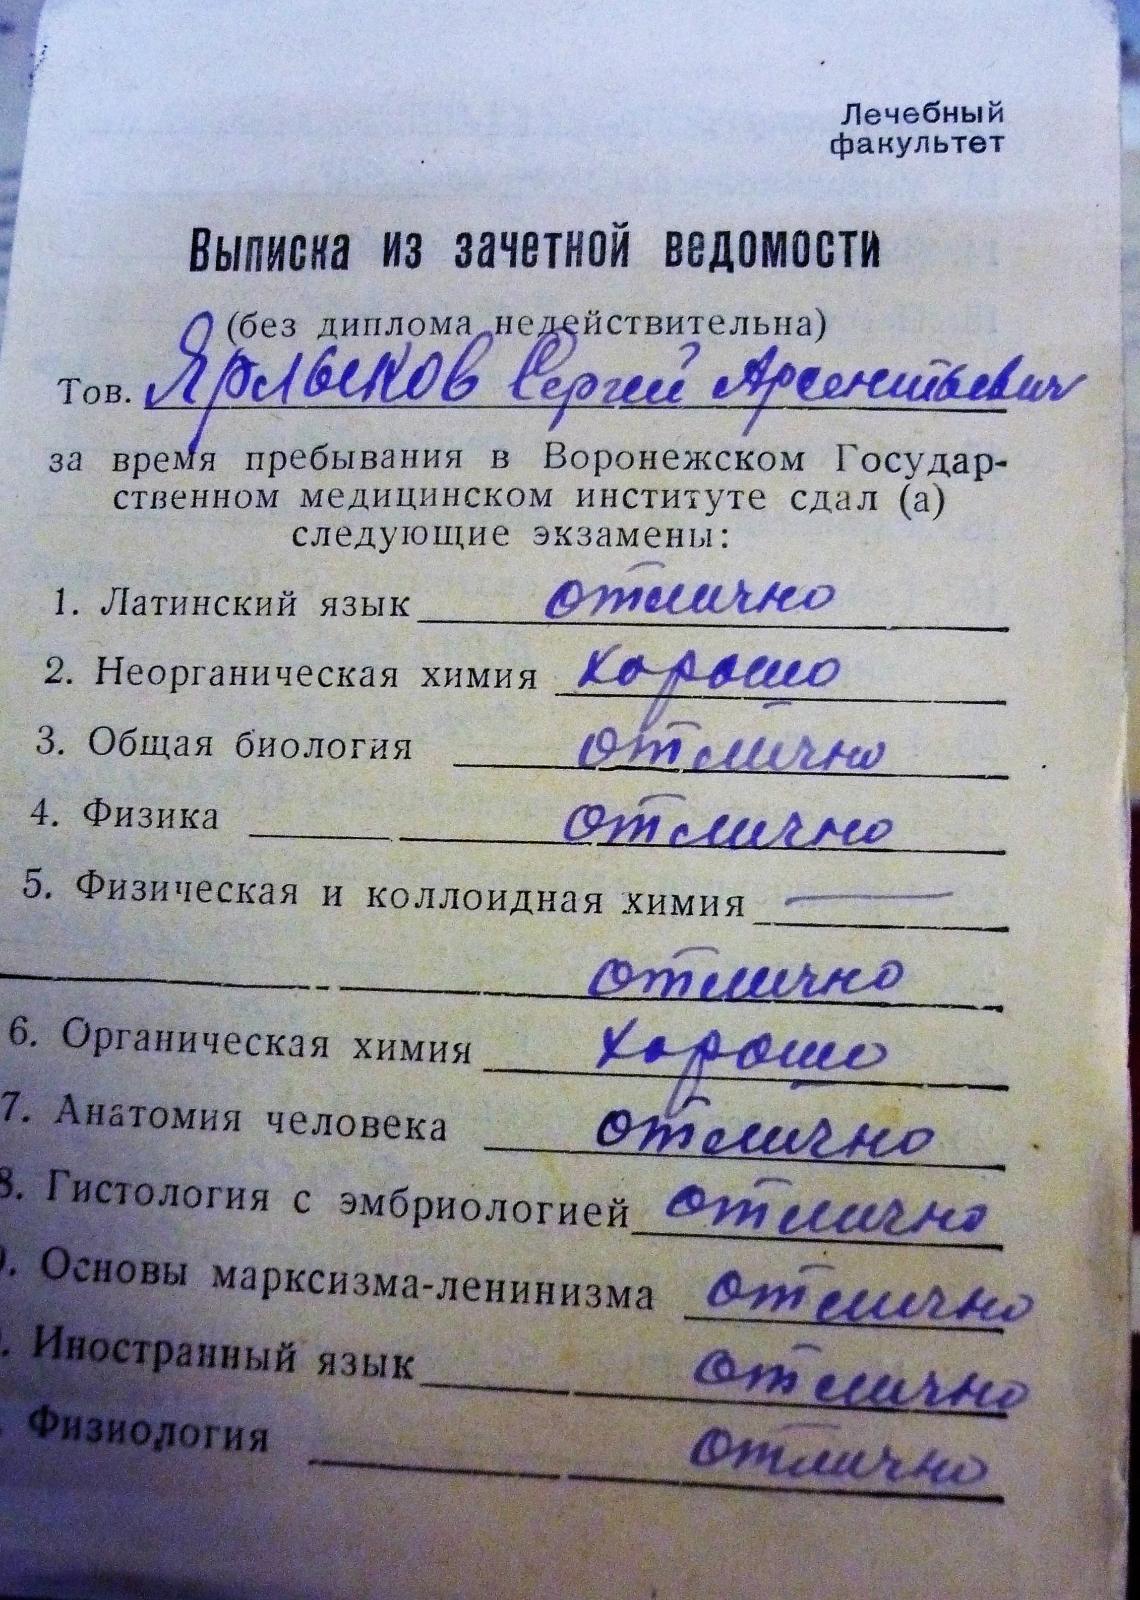 Лечебный
факультет
Выписка из зачетной ведомости
(без диплома недействительна)
Тов. Ярлыков Сергей Арсентьевич
за время пребывания в Воронежском Государ-
ственном медицинском институте сдал (а)
следующие экзамены:
1. Латинский язык отлично
2. Неорганическая химия хорошо
3. Общая биология отлично
4. Физика отлично
5. Физическая и коллоидная химия —
отлично
6. Органическая химия хорошо
7. Анатомия человека отлично
8. Гистология с эмбриологией отлично
. Основы марксизма-ленинизма отлично
. Иностранный язык отлично
. Физиология отлично